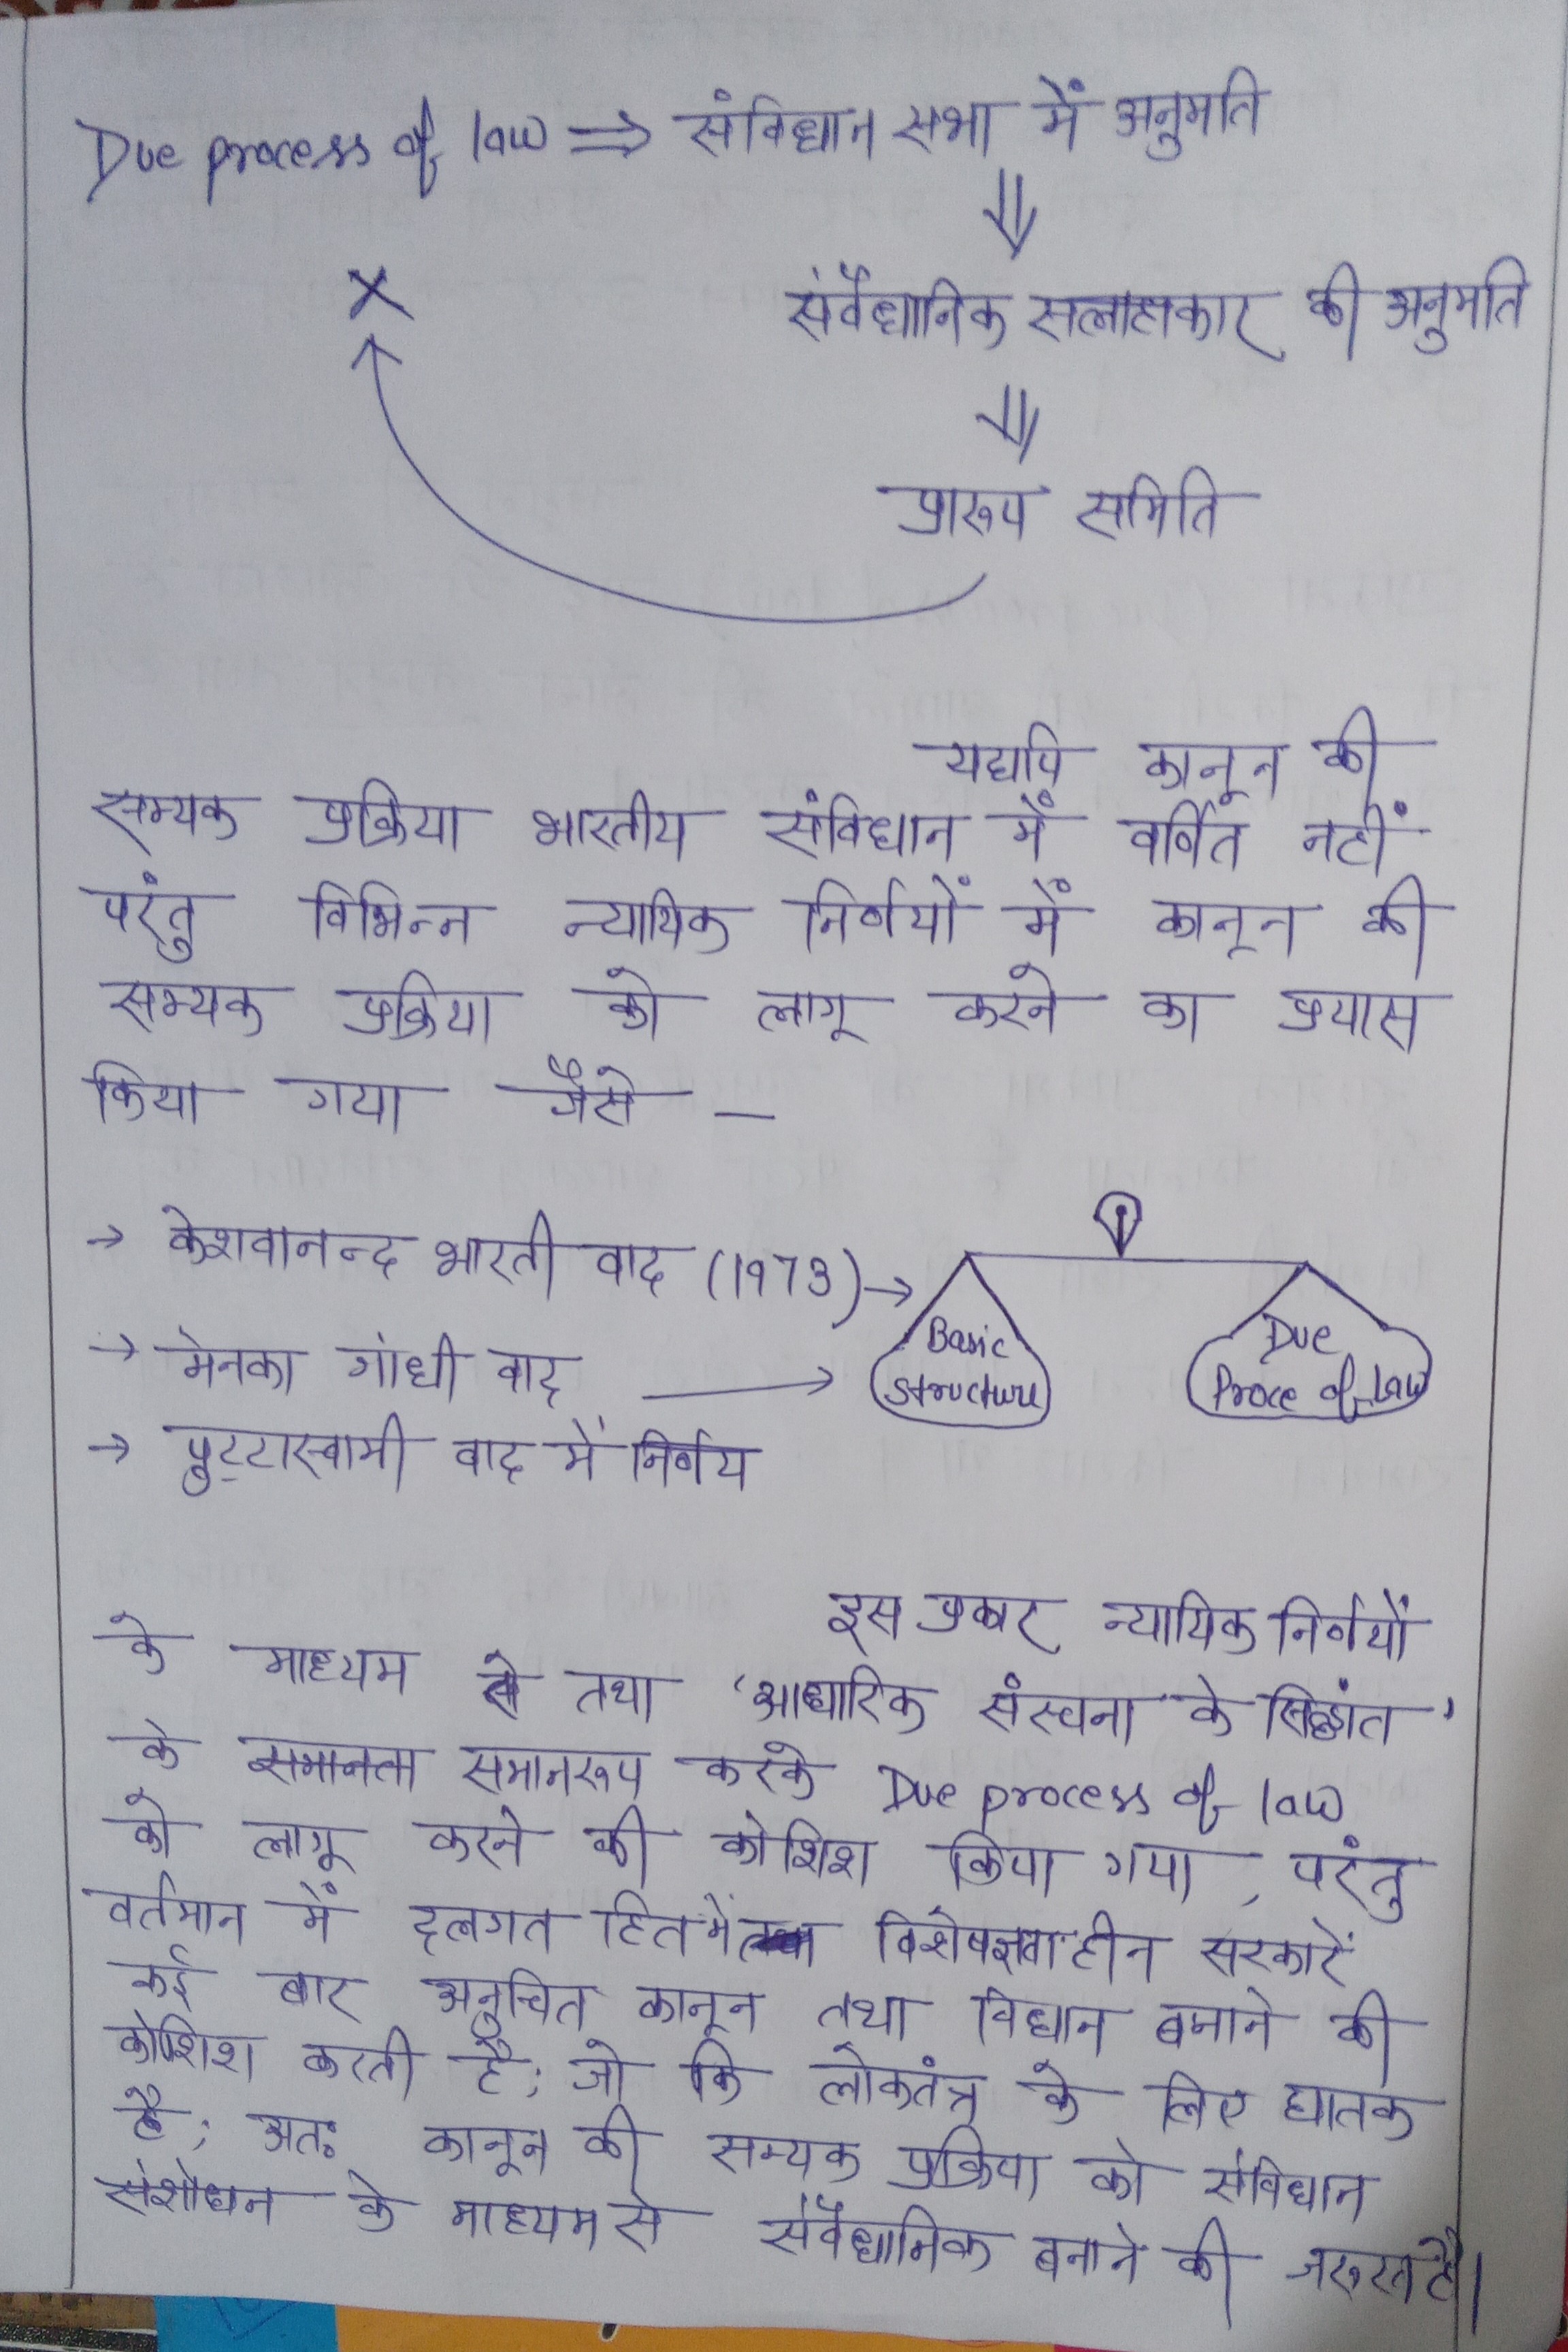 Due process of law ⇒ संविधान सभा में अनुमति
⇓
x
संवैधानिक सलाहकार की अनुमति
⇓
प्रारूप समिति
यद्यपि कानून की
सम्यक प्रक्रिया भारतीय संविधान में वर्णित नहीं
परंतु विभिन्न न्यायिक निर्णयों में कानून की
सम्यक प्रक्रिया को लागू करने का प्रयास
किया गया जैसे –
→ केशवानन्द भारती वाद (1973) →
Basic
structure
Due
Proce of law
→ मेनका गांधी वाद →
→ पुट्टास्वामी वाद में निर्णय
इस प्रकार न्यायिक निर्णयों
के माध्यम से तथा 'आधारिक संरचना के सिद्धांत'
के समानता समानरूप करके Due process of law
को लागू करने की कोशिश किया गया, परंतु
वर्तमान में दलगत हित में विशेषज्ञताहीन सरकारें
कई बार अनुचित कानून तथा विधान बनाने की
कोशिश करती है; जो कि लोकतंत्र के लिए घातक
है; अतः कानून की सम्यक प्रक्रिया को संविधान
संशोधन के माध्यम से संवैधानिक बनाने की जरूरत है।